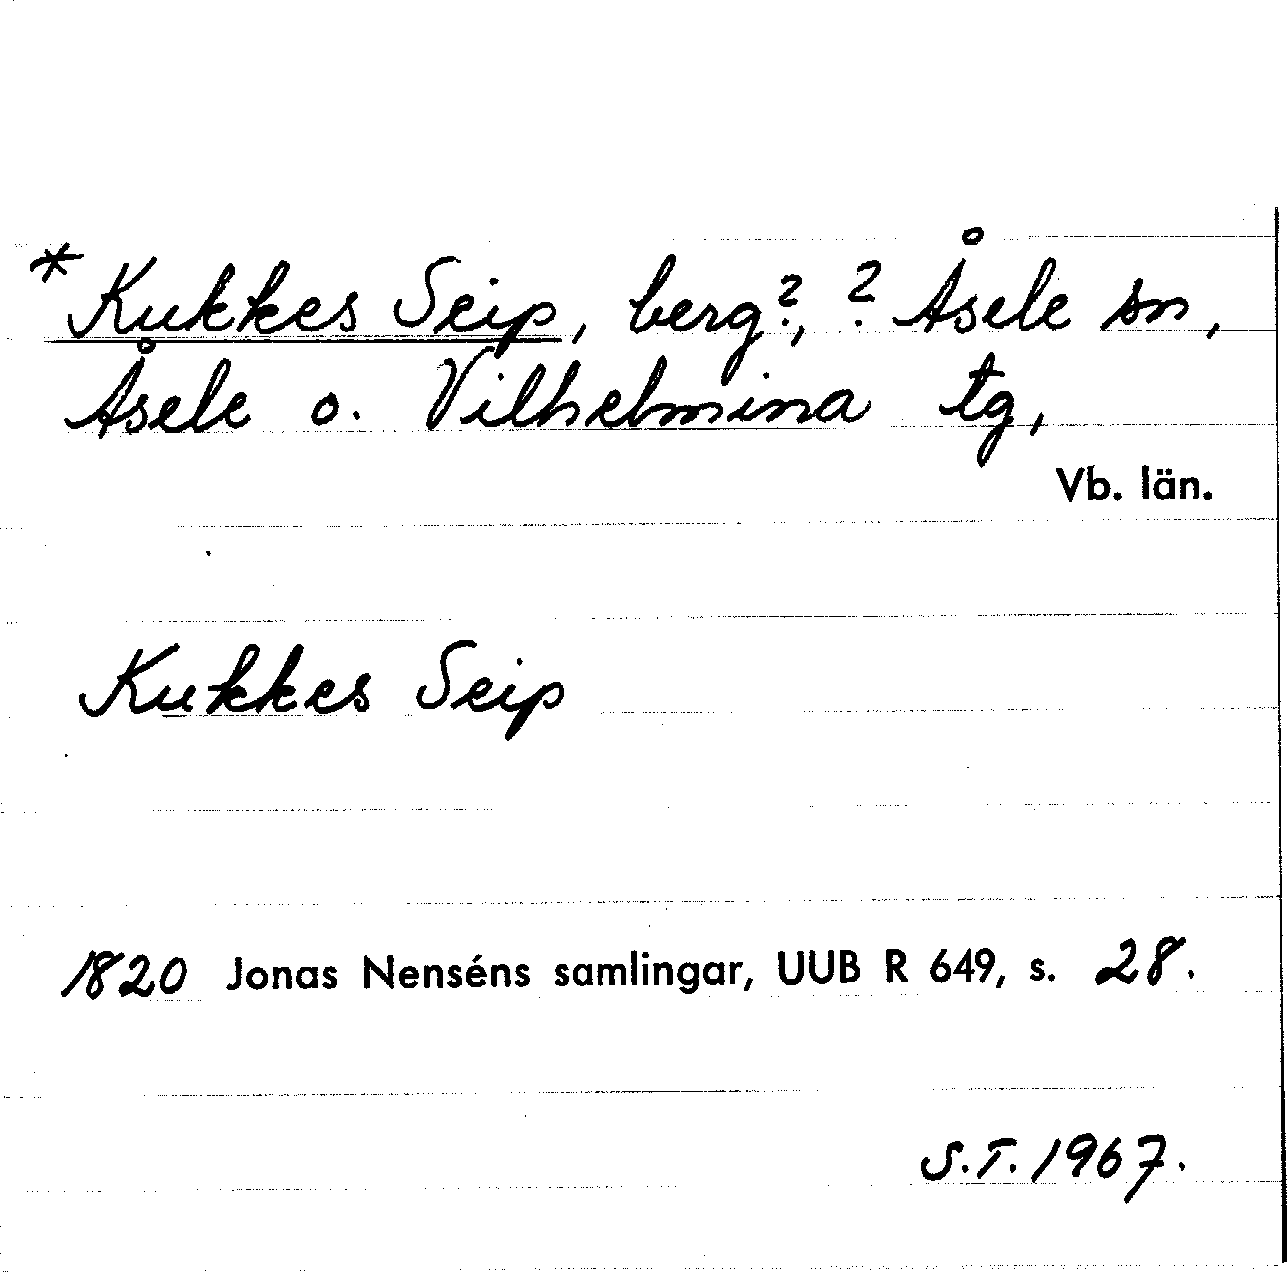 *Kukkes Seip, berg?, ? Åsele sn,
Åsele o. Vilhelmina tg,
Vb. län.
Kukkes Seip
1820 Jonas Nenséns samlingar, UUB R 649, s. 28.
S.T. 1967.